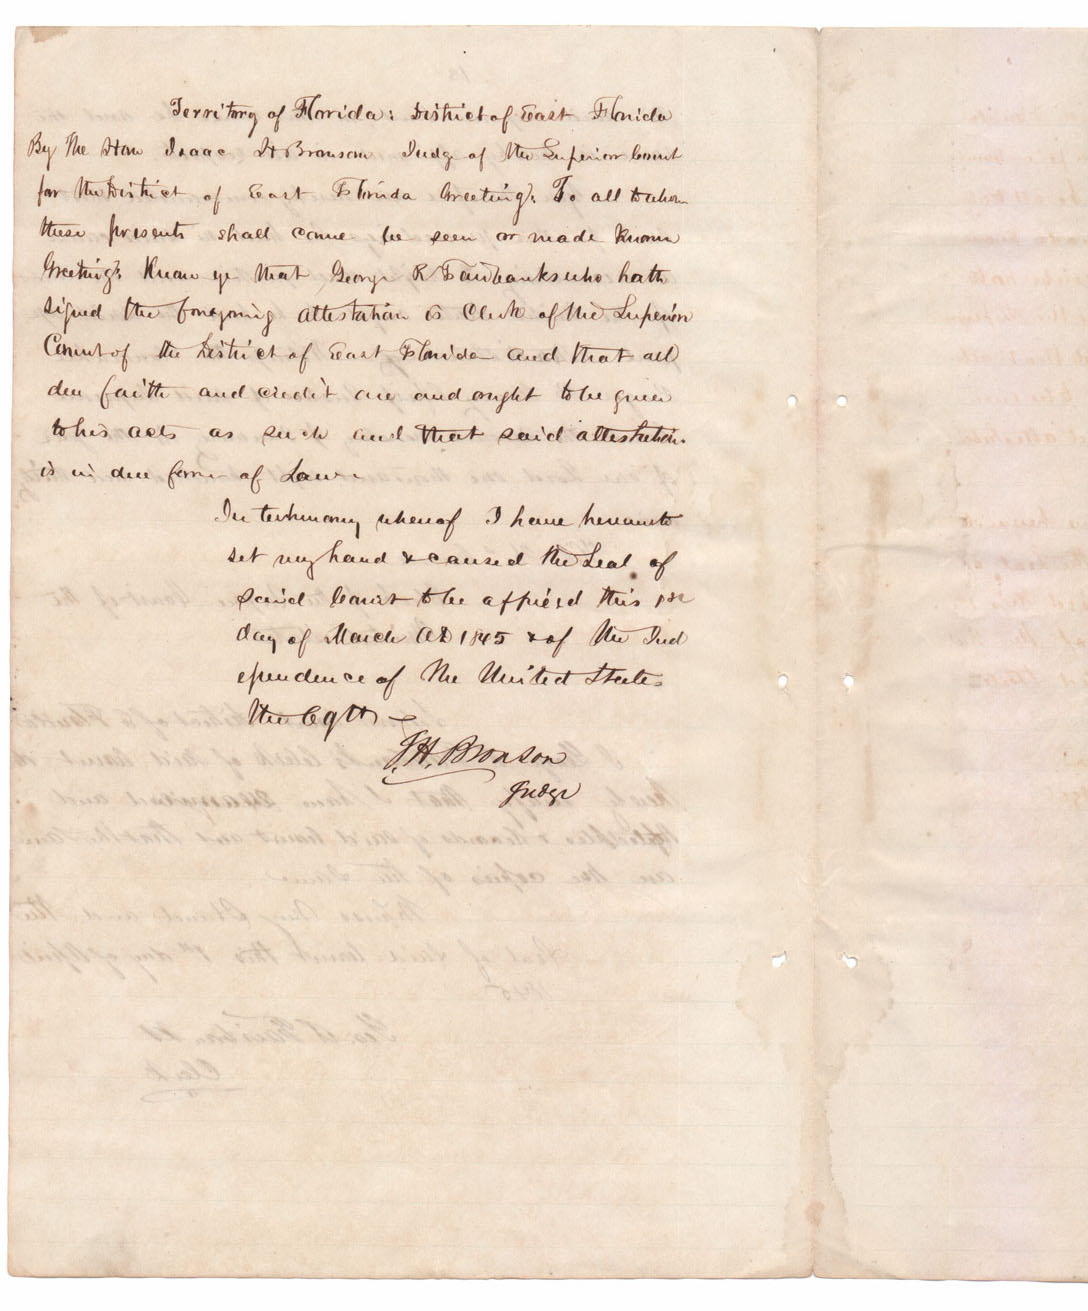 Territory of Florida: District of East Florida
By The Hon Isaac H Bronson Judg of the Superior Court
for the District of East Florida Greeting: To all to whom
these presents shall come be seen or made known
Greeting: Know ye that George R Fairbanks who hath
signed the foregoing attestation is Clerk of the Superior
Court of the District of East Florida and that all
due faith and credit are and ought to be given
to his acts as such and that said attestation
is in due form of Law
In testimony whereof I have hereunto
set my hand & caused the Seal of
said Court to be affixed this 1st
day of March AD 1845 & of the Ind
ependence of the United States
the 69th
I.H. Bronson
Judge